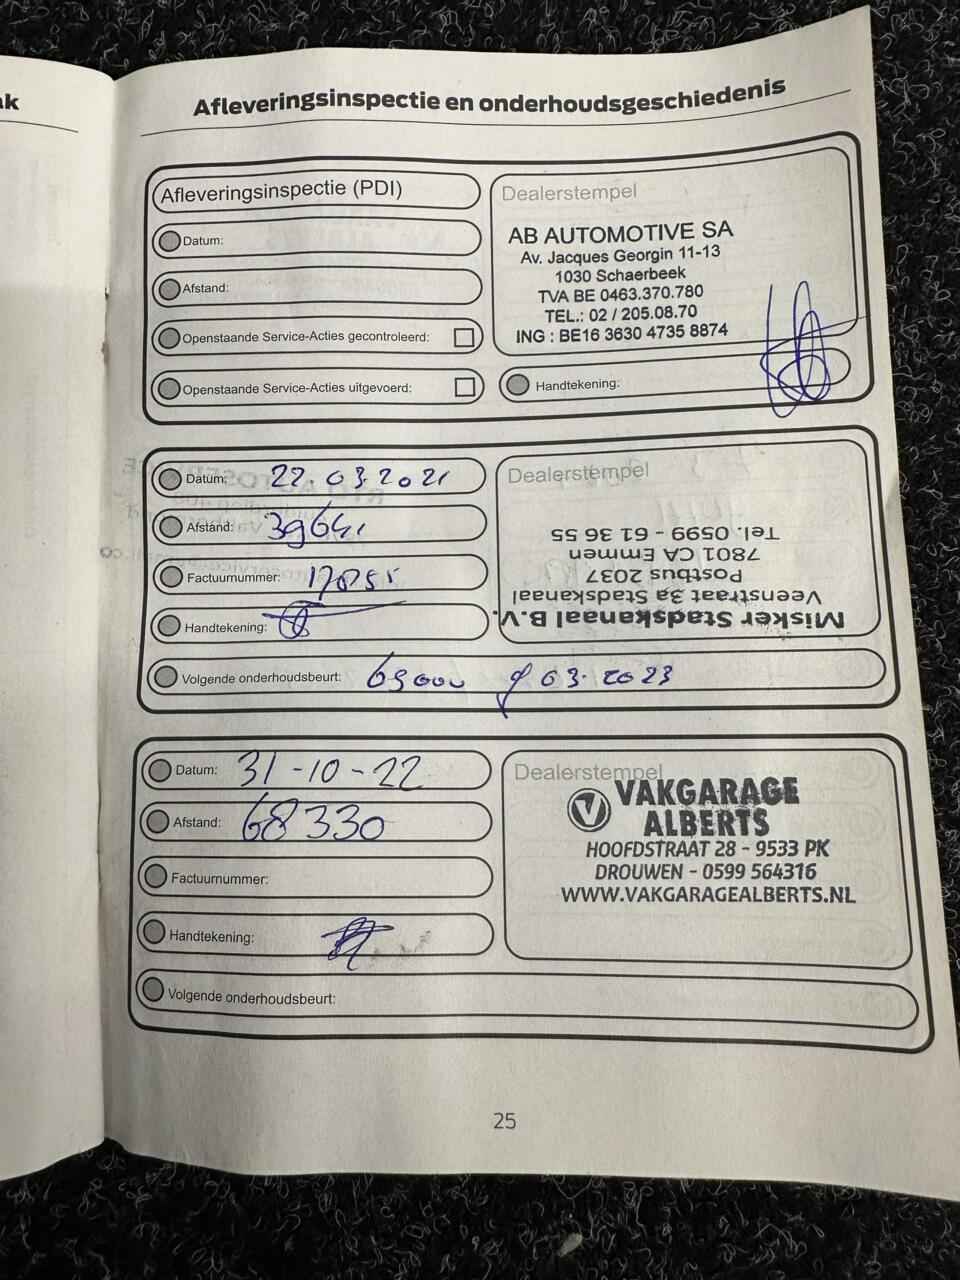 ak
Afleveringsinspectie en onderhoudsgeschiedenis
Afleveringsinspectie (PDI)
Datum:
Afstand:
Openstaande Service-Acties gecontroleerd:
Openstaande Service-Acties uitgevoerd:
Dealerstempel
AB AUTOMOTIVE SA
Av. Jacques Georgin 11-13
1030 Schaerbeek
TVA BE 0463.370.780
TEL.: 02 / 205.08.70
ING : BE16 3630 4735 8874
Handtekening:
Datum: 22.03.2021
Afstand:
Factuurnummer:
Handtekening:
Dealerstempel
Misker Stadskanaal B.V.
Veenstraat 3a Stadskanaal
Postbus 2037
7801 CA Emmen
Tel. 0599 - 61 36 55
Volgende onderhoudsbeurt: 69000 of 03.2023
Datum: 31-10-22
Afstand: 68330
Factuurnummer:
Handtekening:
Volgende onderhoudsbeurt:
Dealerstempel
VAKGARAGE
ALBERTS
HOOFDSTRAAT 28 - 9533 PK
DROUWEN - 0599 564316
WWW.VAKGARAGEALBERTS.NL
25